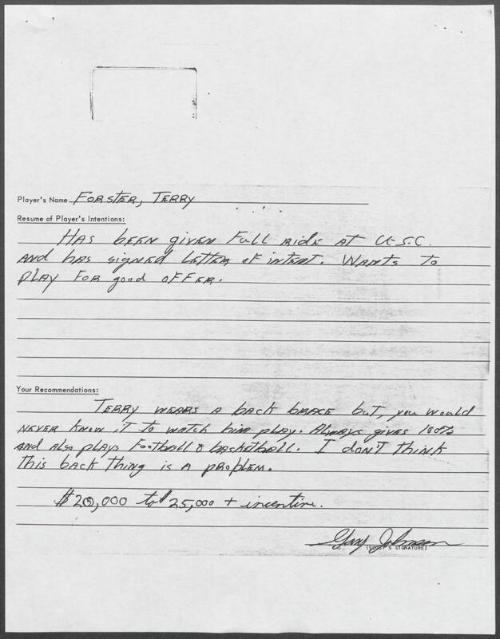 Player's Name FORSTER, TERRY
Resume of Player's Intentions:
HAS BEEN given Full RIDE AT U.S.C.
AND has signed LETTER of intent. WANTS TO
PLAY FOR good OFFER.
Your Recommendations:
TERRY WEARS A back BRACE but, you would
NEVER KNOW iT to WATCH him PLAY. Always gives 100%
AND Also plays Football & basketball. I DON'T THINK
This back Thing is A pRoblem.
$20,000 to $25,000 + incentive.
Gary Johnson
(SCOUT'S SIGNATURE)